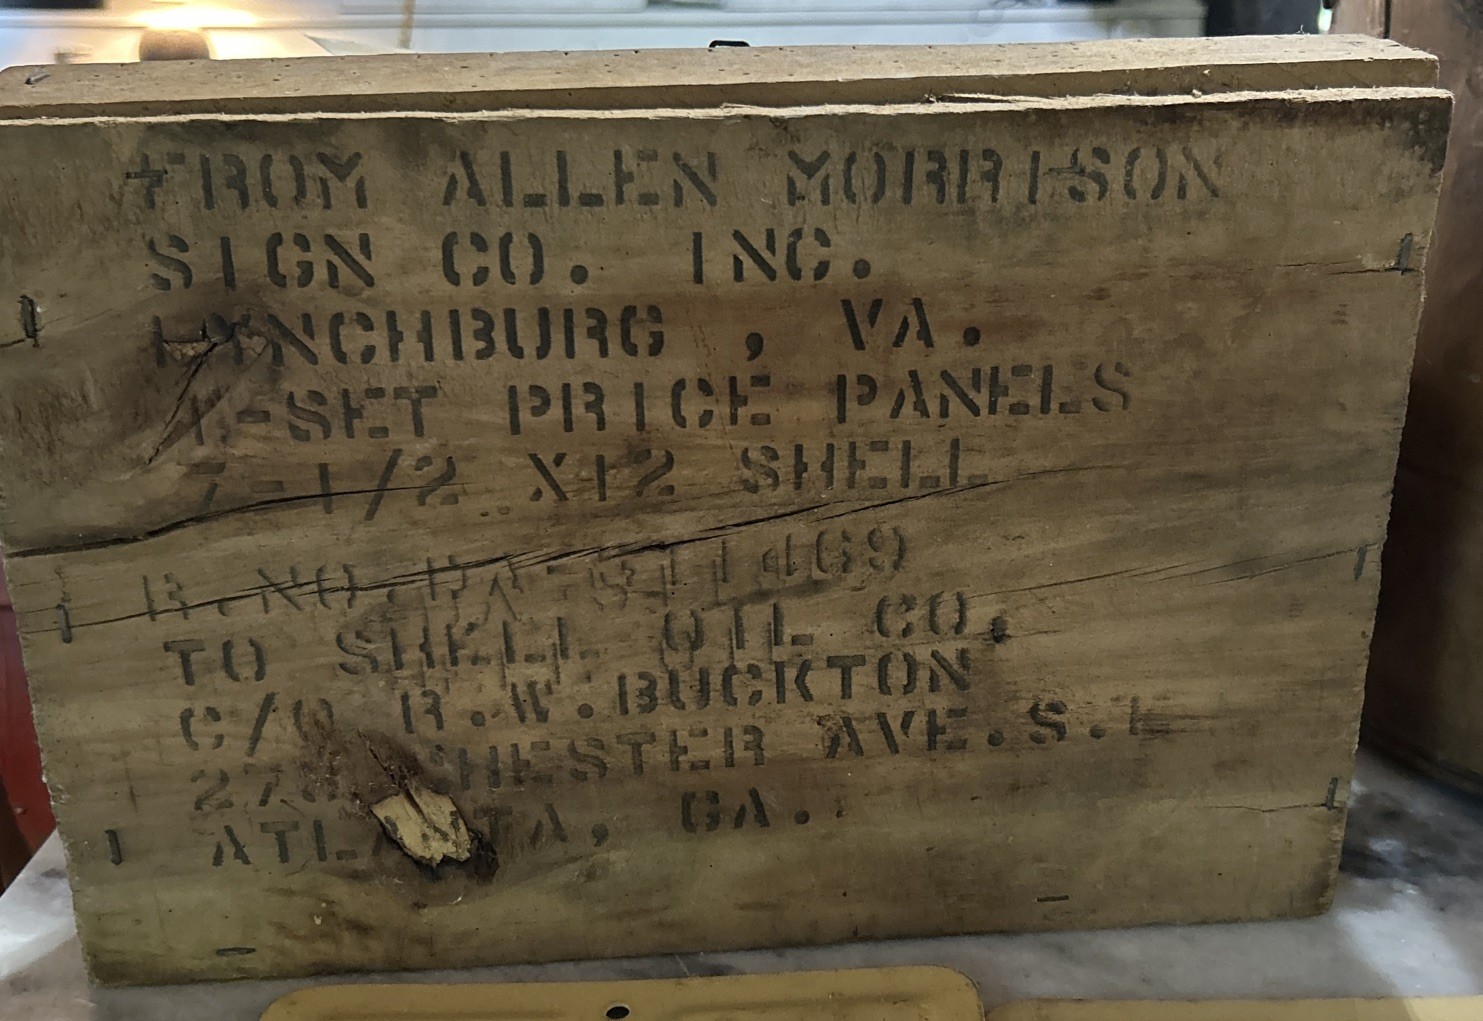 FROM ALLEN MORRISON
SIGN CO. INC.
LYNCHBURG, VA.
1-SET PRICE PANELS
7-1/2 X12 SHELL
R.NO.
TO SHELL OIL CO.
C/O R.W.BUCKTON
AVE.S.E
ATLANTA, GA.